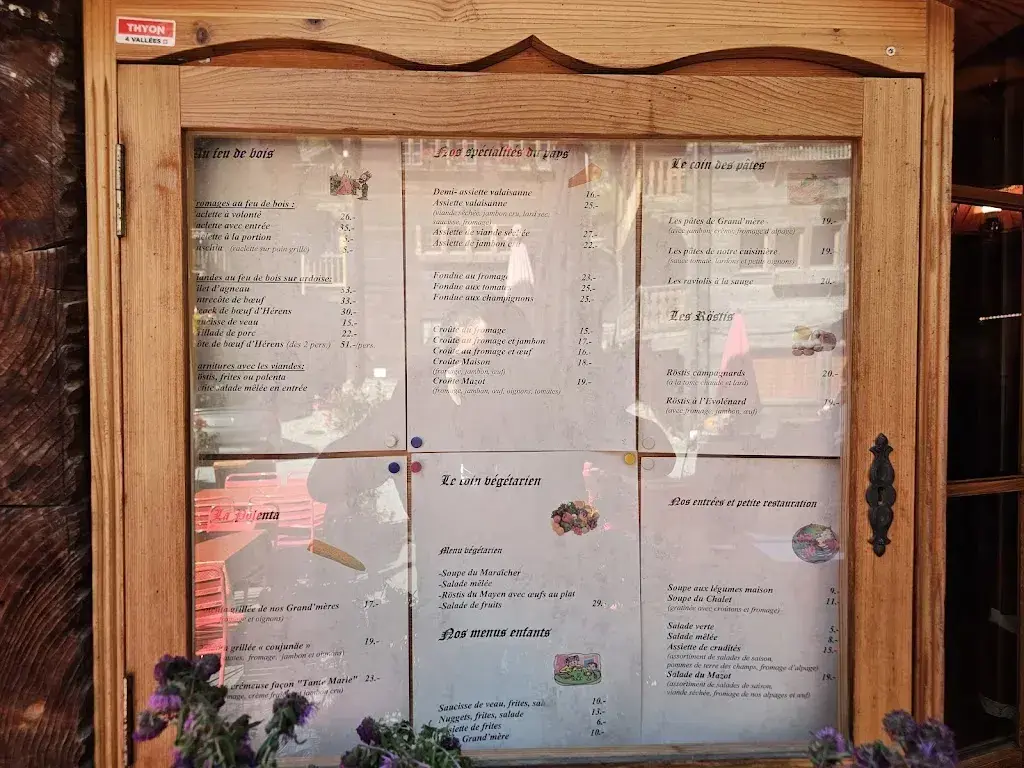 THYON
4 VALLÉES
Au feu de bois
romages au feu de bois :
aclette à volonté 26.-
aclette avec entrée 35.-
aclette à la portion
(raclette sur pain grillé) 5.-
iandes au feu de bois sur ardoise:
ilet d'agneau 33.-
ntrecôte de bœuf 33.-
teack de bœuf d'Hérens 30.-
aucisse de veau 15.-
rillade de porc 22.-
ôte de bœuf d'Hérens (dès 2 pers.) 51.-/pers.
arnitures avec les viandes:
östis, frites ou polenta
salade mêlée en entrée
Nos spécialités du pays
Demi- assiette valaisanne 16.-
Assiette valaisanne 25.-
(viande séchée, jambon cru, lard sec,
saucisse, fromage)
Assiette de viande séchée 27.-
Assiette de jambon cru 22.-
Fondue au fromage 23.-
Fondue aux tomates 25.-
Fondue aux champignons 25.-
Croûte au fromage 15.-
Croûte au fromage et jambon 17.-
Croûte au fromage et œuf 16.-
Croûte Maison 18.-
(fromage, jambon, œuf)
Croûte Mazot 19.-
(fromage, jambon, œuf, oignons, tomates)
Le coin des pâtes
Les pâtes de Grand'mère 19.-
(avec jambon, crème, fromage d'alpage)
Les pâtes de notre cuisinière 19.-
(sauce tomate, lardons et petits oignons)
Les raviolis à la sauge 20.-
Les Röstis
Röstis campagnards 20.-
(à la tome chaude et lard)
Röstis à l'Evolénard 19.-
(avec fromage, jambon, œuf)
La Polenta
grillée de nos Grand'mères 17.-
et oignons)
grillée « coujunâe » 19.-
fromage, jambon et oignons)
crémeuse façon "Tante Marie" 23.-
crème jambon cru)
Le coin végétarien
Menu végétarien
-Soupe du Maraîcher
-Salade mêlée
-Röstis du Mayen avec œufs au plat
-Salade de fruits 29.-
Nos menus enfants
Saucisse de veau, frites, 10.-
Nuggets, frites, salade 13.-
siette de frites 6.-
Grand'mère 10.-
Nos entrées et petite restauration
Soupe aux légumes maison 9.-
Soupe du Chalet 11.-
(gratinée avec croûtons et fromage)
Salade verte 5.-
Salade mêlée 8.-
Assiette de crudités 13.-
(assortiment de salades de saison,
pommes de terre des champs, fromage d'alpage)
Salade du Mazot 19.-
(assortiment de salades de saison,
viande séchée, fromage de nos alpages et œuf)